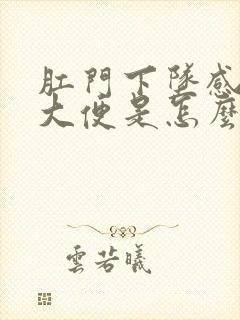 肛門下墜感
大便是怎麼
雲若曦